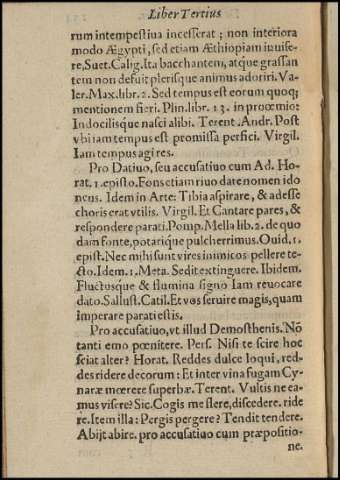 Liber Tertius
rum intempestiua incesserat; non interiora
modo Ægypti, sed etiam Æthiopiam inuise-
re, Suet. Calig. Ita bacchantem, atque grassan
tem non defuit plerisque animus adoriri. Va-
ler. Max. libr. 2. Sed tempus est eorum quoq;
mentionem fieri. Plin. libr. 13. in proœmio:
Indocilisque nasci alibi. Terent. Andr. Post
vbi iam tempus est promissa perfici. Virgil.
Iam tempus agi res.
Pro Datiuo, seu accusatiuo cum Ad. Ho-
rat. 1. episto. Fons etiam riuo dare nomen ido
neus. Idem in Arte: Tibia aspirare, & adesse
choris erat vtilis. Virgil. Et Cantare pares, &
respondere parati. Pomp. Mella lib. 2. de quo
dam fonte, potarique pulcherrimus. Ouid. 1.
epist. Nec mihi sunt vires inimicos pellere te-
cto. Idem. 1. Meta. Sed itextinguere. Ibidem.
Fluctusque & flumina signo Iam reuocare
dato. Sallust. Catil. Et vos seruire magis, quam
imperare parati estis.
Pro accusatiuo, vt illud Demosthenis. Nõ
tanti emo pœnitere. Pers. Nisi te scire hoc
sciat alter? Horat. Reddes dulce loqui, red-
des ridere decorum: Et inter vina fugam Cy-
naræ mœrere superbæ. Terent. Vultis ne ea-
mus visere? Sic. Cogis me flere, discedere. ride
re. Item illa: Pergis pergere? Tendit tendere.
Abijt abire. pro accusatiuo cum præpositio-
ne.